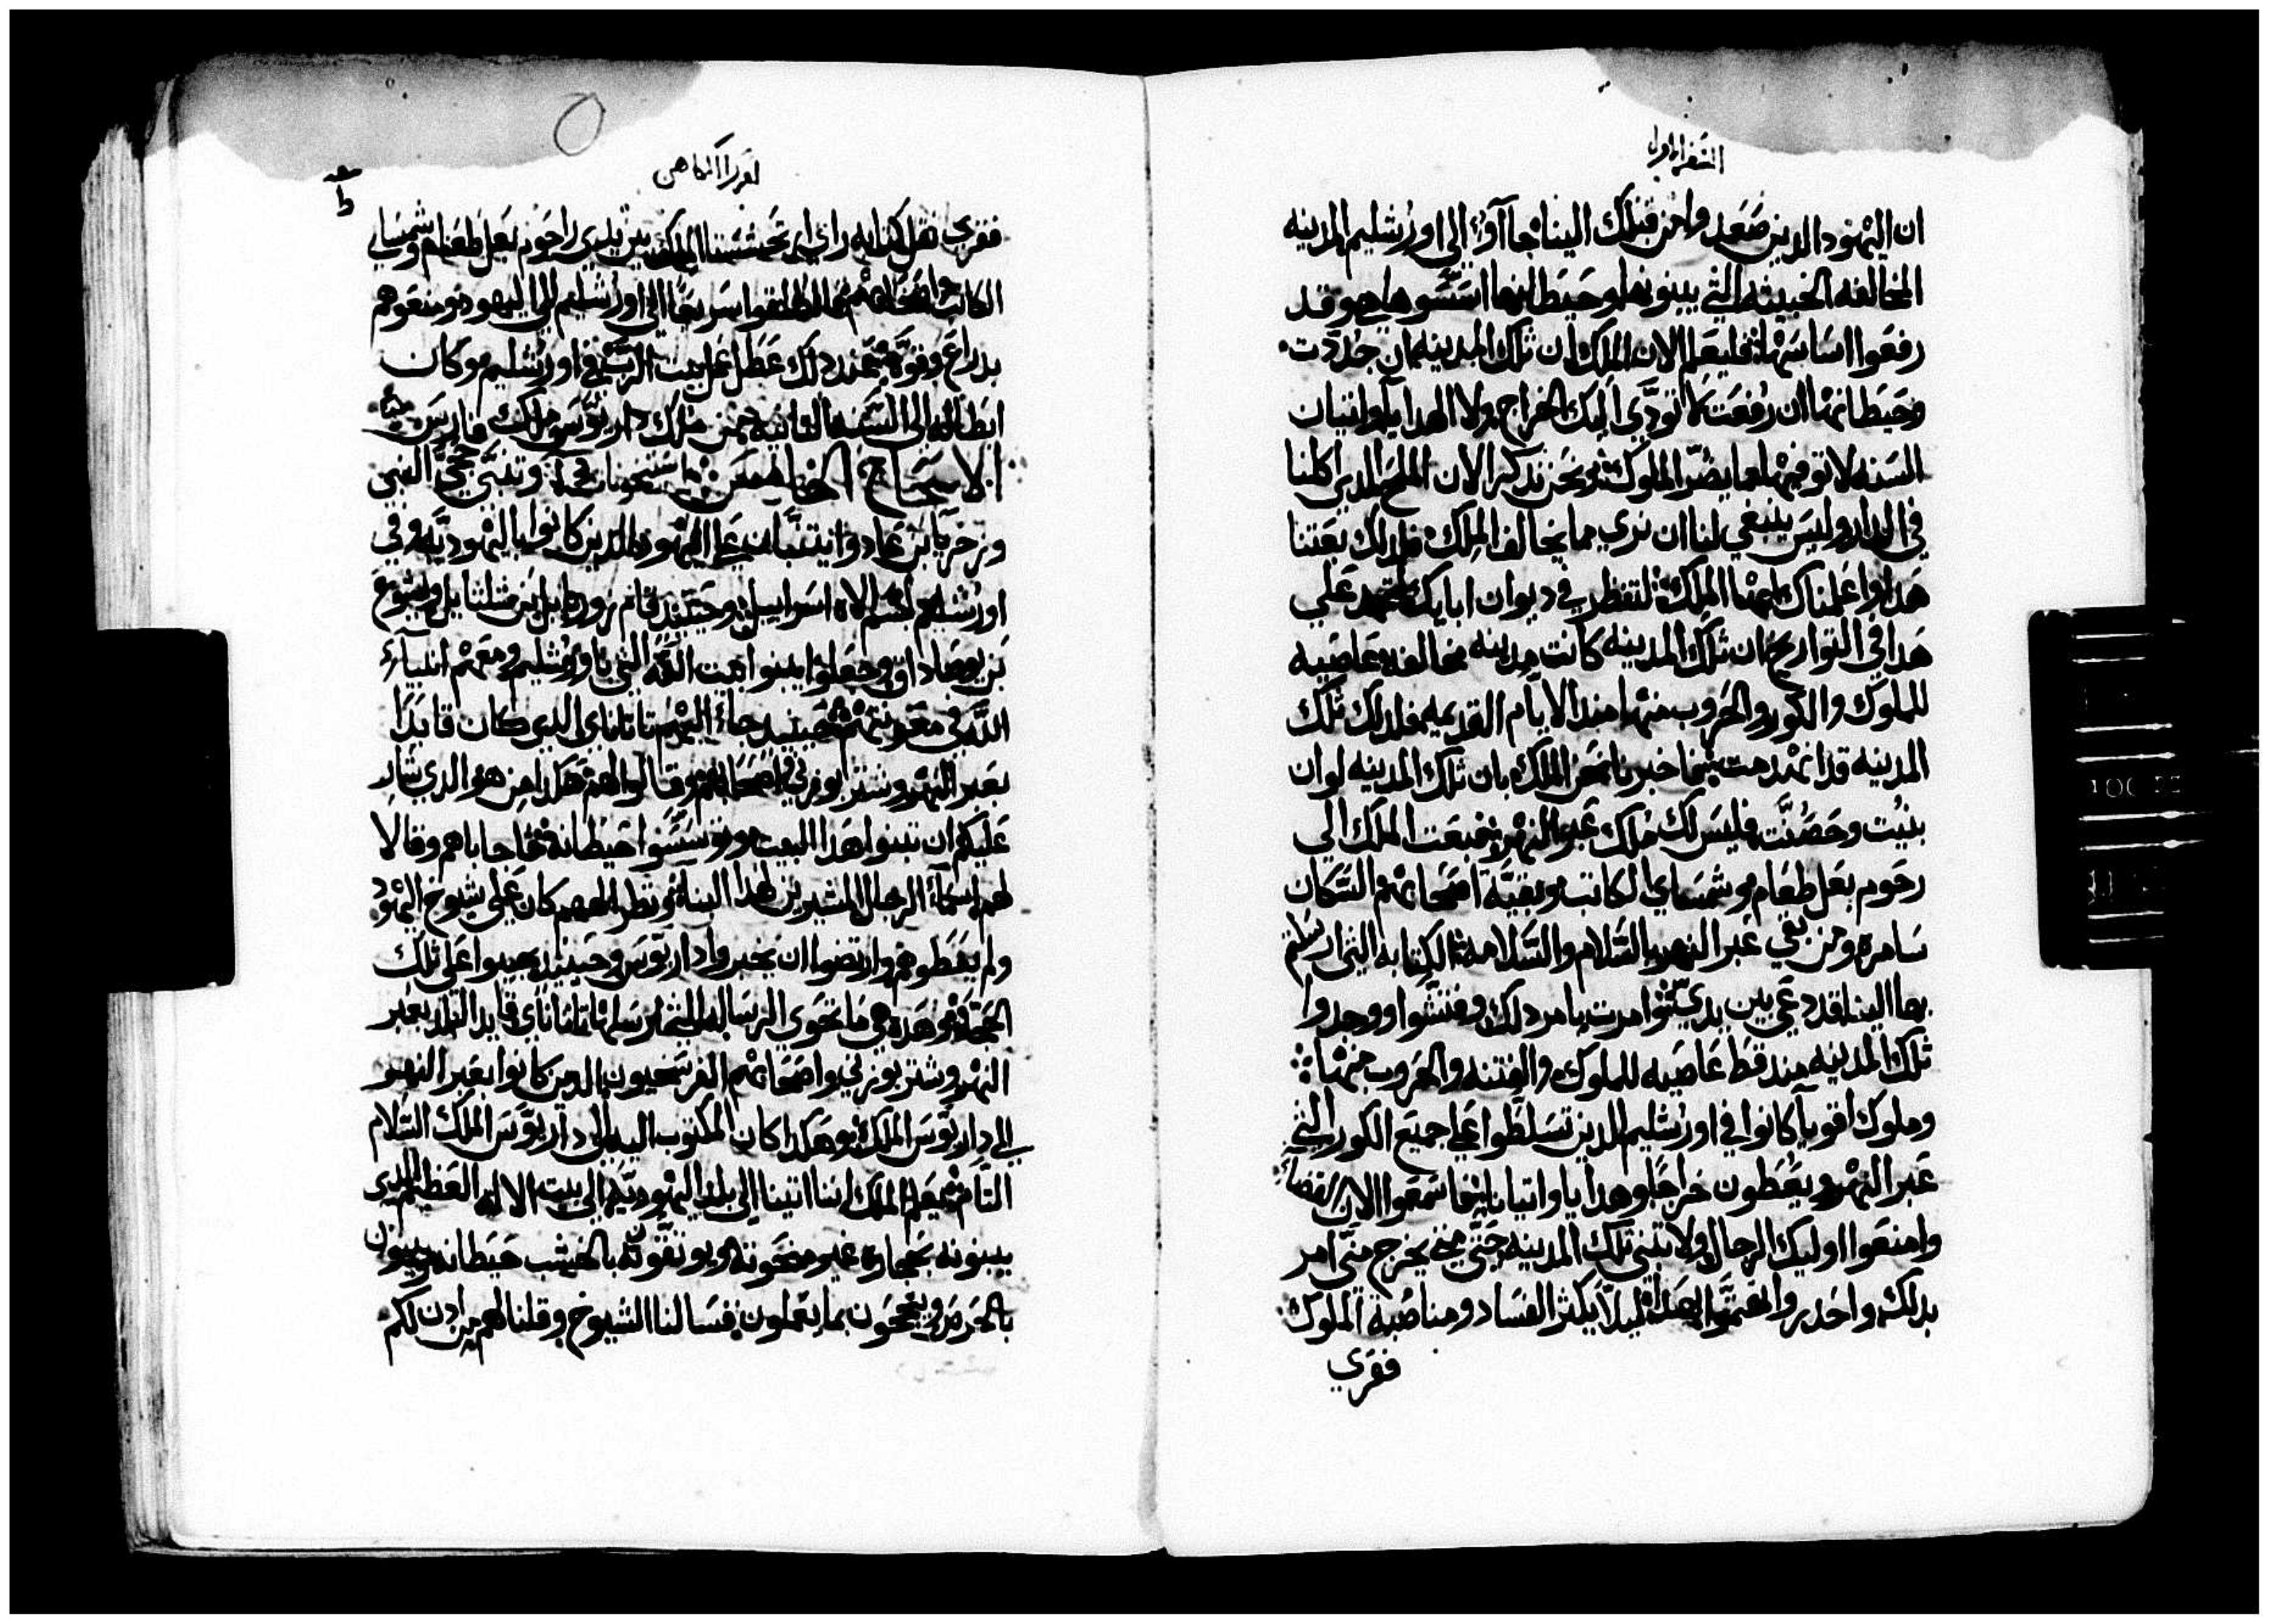 السفر الاول
ان اليهود الدين صعدوا من قبلك الينا جاآوا الي اورشليم المدينه
المخالفه الخبيثه التي يبنونها وحيطانها اسسوها وقد
رفعوا اساسها فليعلم الان الملك ان تلك المدينه ان جددت
وحيطانها ان رفعت لا تودي اليك الخراج ولا الهدايا واتيان
السنه لا توفيها بضر الملوك ونحن ندكر الان الملح الدي اكلنا
في الدار وليس ينبغي لنا ان نري مما يخالف الملك فلدلك بعتنا
هدا واعلمناك ايها الملك لتنظر في ديوان ابايك علي
هدا في التواريخ ان تلك المدينه كانت مدينه مخالفه عاصيه
للملوك والكور والحروب منها مند الايام القديمه فلدلك تلك
المدينه قد انهدمت نخبر نحن الملك بان تلك المدينه لو ان
بنيت وحصنت فليس لك ملك عبر النهر فبعت الملك الي
رحوم بعل طعام وشمساي الكاتب وبقية اصحابهم السكان
سامره ومن بقي عبر النهر السلام والسلامه الكتابه التي ارسلتم
بها الينا قد دعي بين يدي وامرت بامر دلك وفتشوا ووجدوا
تلك المدينه مند قط عاصيه للملوك والفتنه والحروب منها
وملوك اقويآ كانوا في اورشليم الدين تسلطوا علي جميع الكور التي
عبر النهر ويعطون خراجا وهدايا واتيانا فاسمعوا الان القضاء
وامنعوا اوليك الرجال ولا تبني تلك المدينه حتي يخرج مني امر
بدلك واحدروا لهدا ليلا يكثر الفساد ومناصبة الملوك
فقري
لعزرا الكاهن
فقري نقل كتابه راي الملك بين يدي راحوم بعل طعام وشمساي
الكاتب واصحابهم انطلقوا سريعا الي اورشليم الي اليهود ومنعوهم
بدراع وقوه عند دلك عطل عمل بيت الرب في اورشليم وكان
ابطاله الي السنه التانيه من ملك داريوس ملك فارس
الاصحاح الخامس وتنبي حجي النبي
وزخريا بن عادوا يتنبان علي اليهود الدين كانوا باليهوديه وفي
اورشليم باسم الاه اسراييل وحينيد قام زوربابل بن شلتايل ويشوع
بن يوصاداق وجعلوا يبنوا بيت الله التي باورشليم ومعهم انبياء
الله في معونتهم فحينيد جاء اليهم تاتاناي الدي كان قايدا
بعبر النهر وشتربوزني واصحابهم وقالوا لهم هكدا من هو الدي شار
عليكم ان تبنوا هدا البيت وتوسسوا حيطانه فاجاباهم وقالا
لهم اسماء الرجال المشيرين لهدا البناء ونظر الههم كان علي شيوخ اليهود
ولم يعطوهم وارتضوا ان يخبروا داريوس وحينيد يجيبوا علي تلك
الحجه وهده هي ما تحوي الرساله التي ارسلها تاتاناي قايد البلد بعبر
النهر وشتربوزني واصحابهم الفرسخيون الدين كانوا بعبر النهر
الي داريوس الملك وهكدا كان المكتوب اليه الي داريوس الملك السلام
التام يعلم الملك اننا اتينا الي بلد اليهوديه الي بيت الاله العظيم الدي
يبنونه بحجاره غير منحوته ويوتقونه بالخشب حيطانه ويبنون
بالحرص وينجحون بما يعملون فسالنا الشيوخ وقلنا لهم من ادن لكم